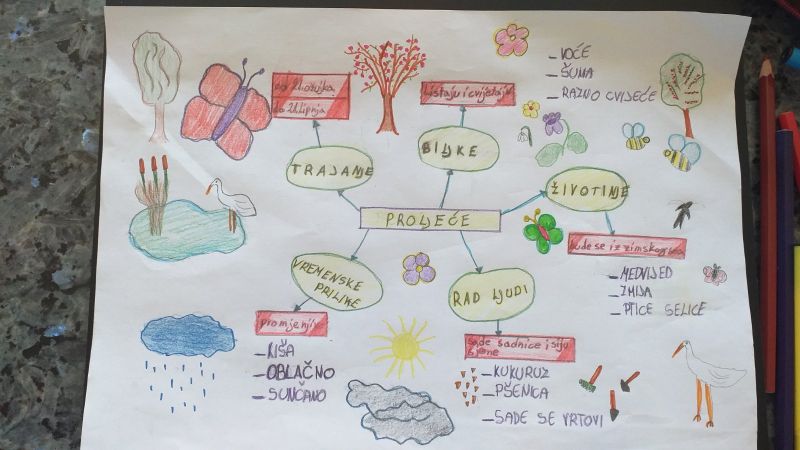 PROLJEĆE
TRAJANJE
od 21. ožujka
do 21. lipnja
BILJKE
listaju i cvjetaju
– VOĆE
– ŠUMA
– RAZNO CVIJEĆE
ŽIVOTINJE
bude se iz zimskog sna
– MEDVIJED
– ZMIJA
– PTICE SELICE
RAD LJUDI
sade sadnice i siju
sjeme
– KUKURUZ
– PŠENICA
– SADE SE VRTOVI
VREMENSKE
PRILIKE
– KIŠA
– OBLAČNO
– SUNČANO